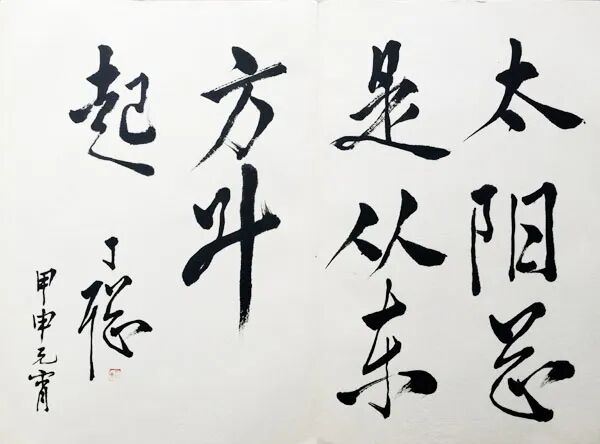 太阳总
是从东
方升
起
丁聪
甲申元宵